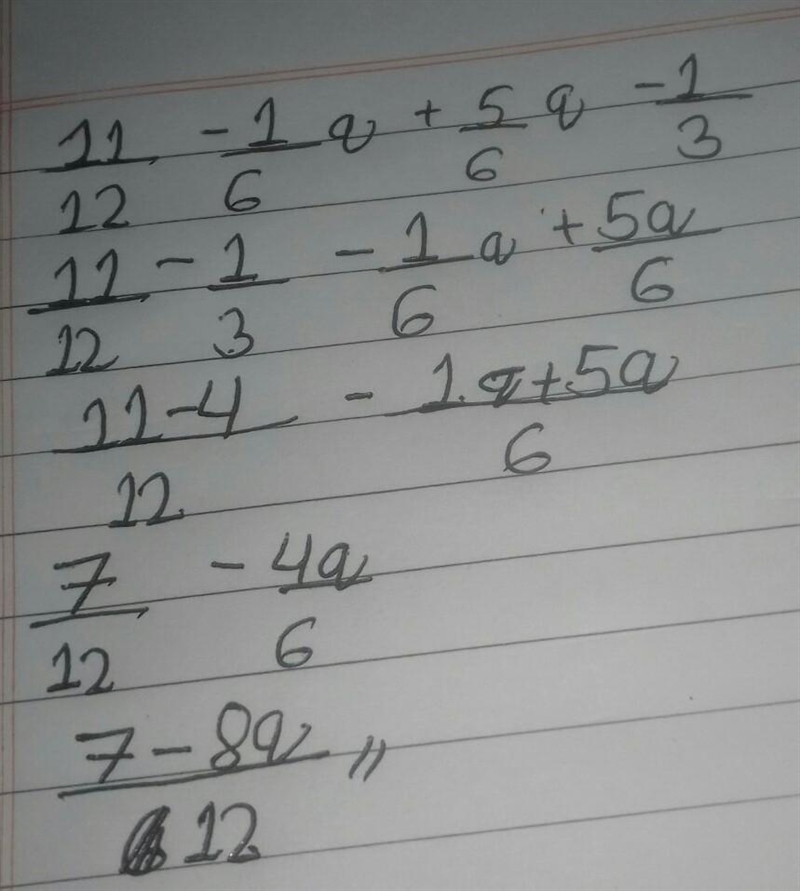 11/12 - 1/6 q + 5/6 q - 1/3
11/12 - 1/3 - 1/6 q + 5q/6
11-4/12 - 1q+5q/6
7/12 - 4q/6
7-8q/12 〃